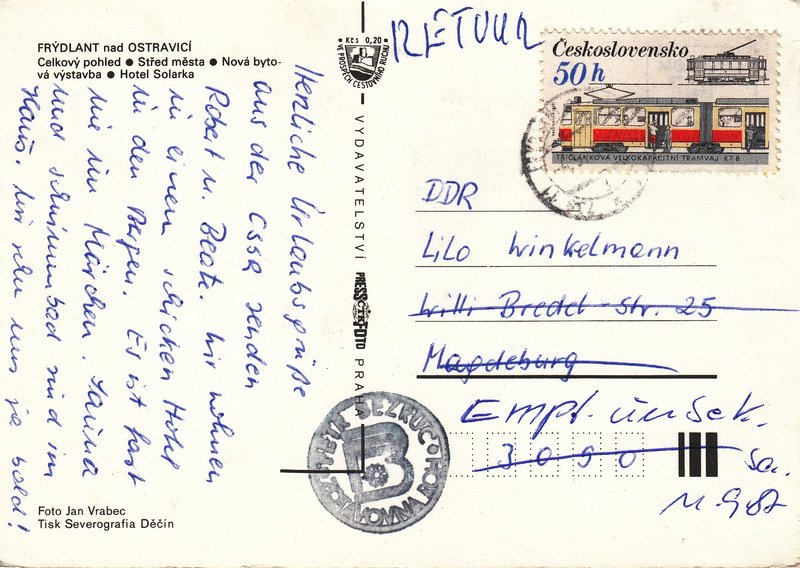 FRÝDLANT nad OSTRAVICÍ
Celkový pohled ● Střed města ● Nová byto-
vá výstavba ● Hotel Solarka
Herzliche Urlaubsgrüße
aus der CSSR senden
Robert u. Beate. Wir wohnen
in einem schicken Hotel
in den Bergen. Es ist fast
wie im Märchen. Sauna
und Schwimmbad sind im
Haus. Wir sehn uns ja bald!
Foto Jan Vrabec
Tisk Severografia Děčín
Kčs 0,20
VE PROSPĚCH CESTOVNÍHO RUCHU
VYDAVATELSTVÍ PRESSFOTO PRAHA
ČTK
RETOUR
Československo
50 h
TŘÍČLÁNKOVÁ VELKOKAPACITNÍ TRAMVAJ KT 8
DDR
Lilo Winkelmann
Willi-Bredel-Str. 25
Magdeburg
Empf. unbek.
3090
PETR BEZRUČ
B